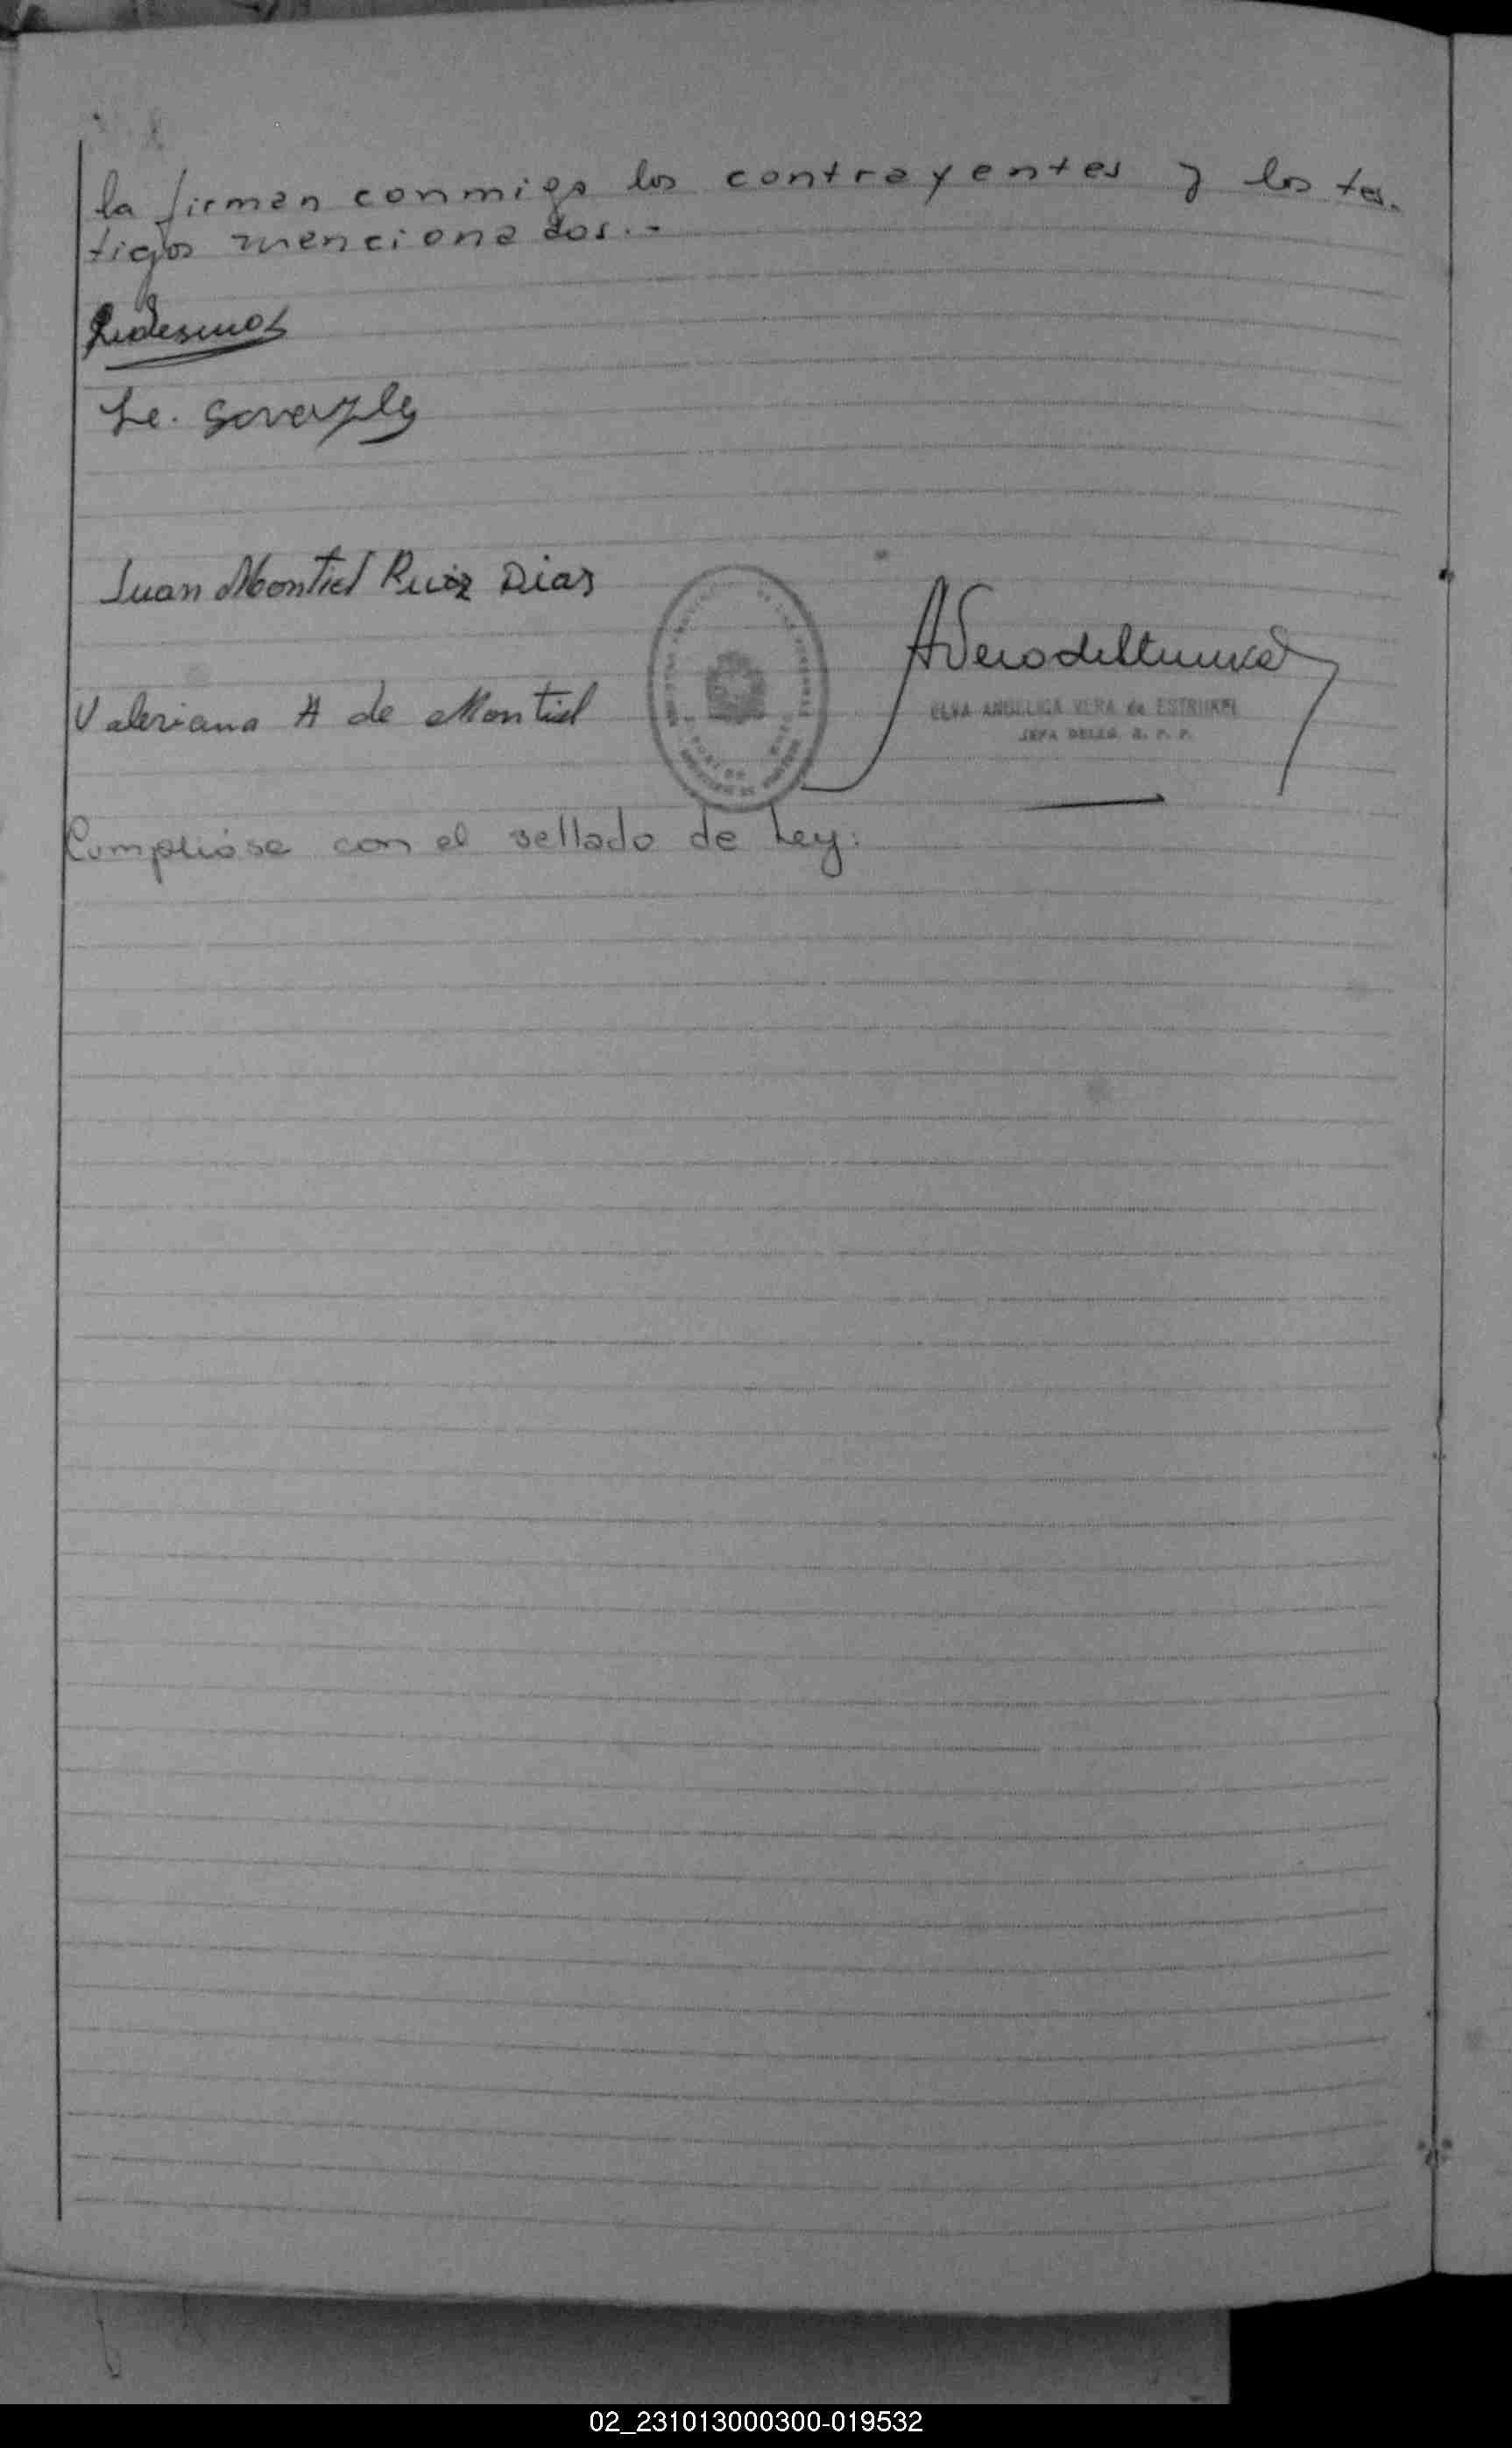 la firman conmigo los contrayentes y los tes-
tigos mencionados.-
Ledesmas
Le. Gonzalez
Juan Montiel Ruiz Dias
Valeriana A de Montiel
ELVA ANGELICA VERA de ESTRIMPEL
JEFA DELEG. R. P. P.
Cumplióse con el sellado de Ley:
02_231013000300-019532